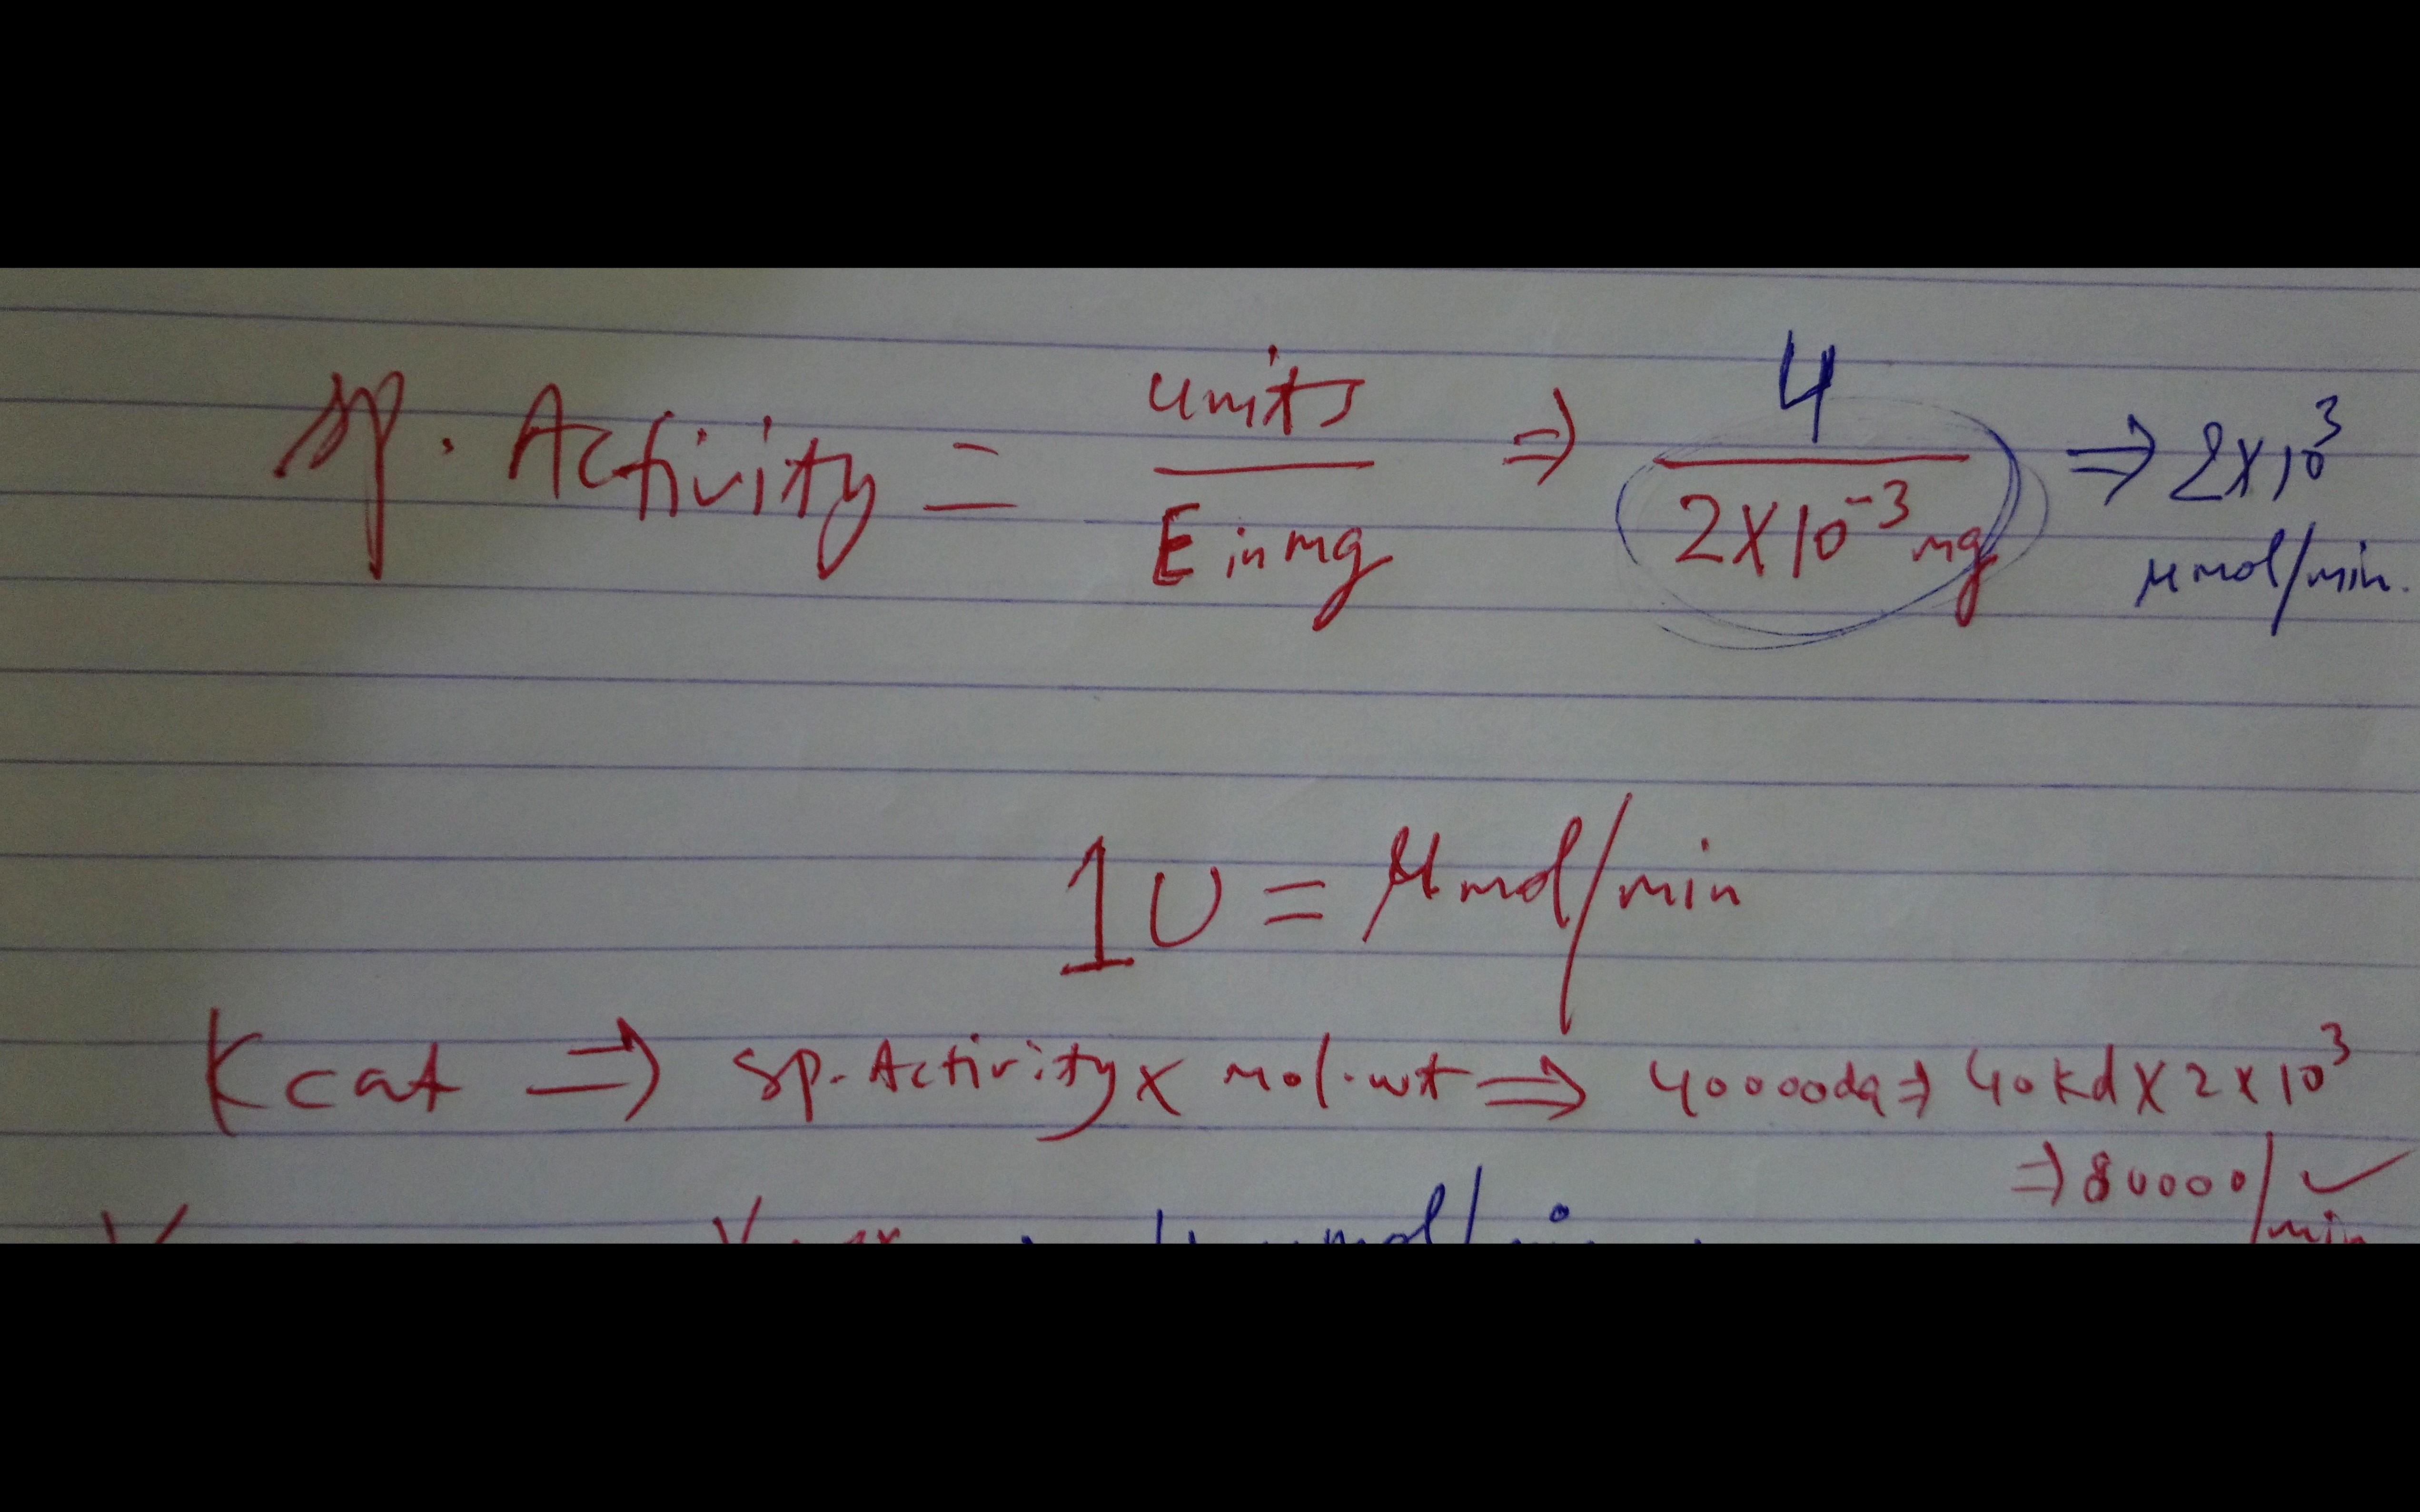 sp. Activity = units / E in mg ⇒ 4 / 2×10⁻³ mg ⇒ 2×10³ μmol/min.
1U = μmol/min
Kcat ⇒ sp. Activity × mol. wt ⇒ 40000da ⇒ 40kd × 2×10³
⇒ 80000/min ✓